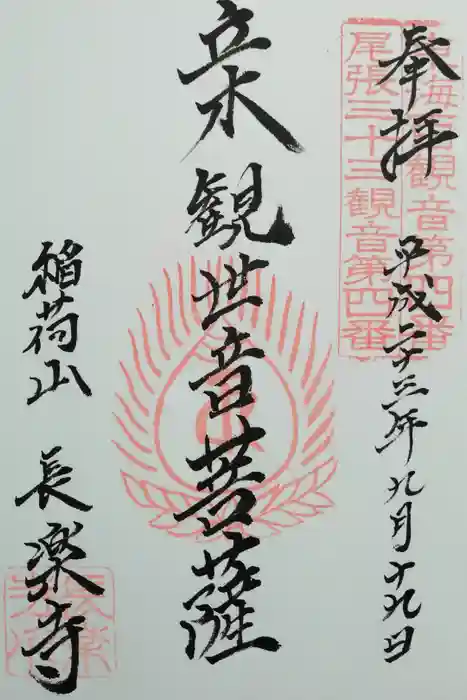 奉拝
平成二十三年九月十九日
海百観音第四番
尾張三十三観音第四番
水観世音菩薩
稲荷山 長楽寺